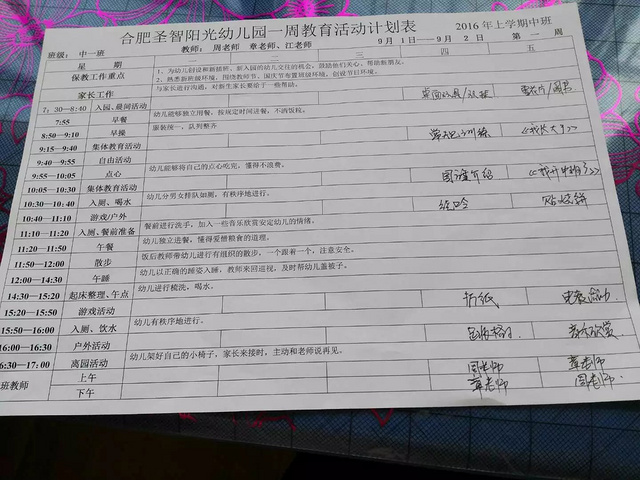 合肥圣智阳光幼儿园一周教育活动计划表 2016年上学期中班
班级：中一班 教师：周老师 章老师、江老师 9月1日——9月2日 第一周
星期 一 二 三 四 五
保教工作重点
1、为幼儿创设和新接班、新入园的幼儿交往的机会，鼓励他们关心、帮助新朋友。
2、熟悉新班级环境，围绕教师节、国庆节布置班级环境，创设节日环境。
家长工作 与家长进行沟通，对新生家长要给予一些帮助。
7：30—8:40 入园、晨间活动
7:55 早餐 幼儿能够独立用餐，按规定时间进餐，不洒饭粒。
8:50—9:10 早操 服装统一、队列整齐
9:15—9:40 集体教育活动 《我长大了》
9:40—9:55 自由活动
9:55—10:05 点心 幼儿能够将自己的点心吃完，懂得不浪费。
10:05—10:30 集体教育活动
10:30—10:40 入厕、喝水 幼儿分男女排队如厕，有秩序地进行。
10:40—11:10 游戏/户外
11:10—11:20 入厕、餐前准备 餐前进行洗手，加入一些音乐欣赏安定幼儿的情绪。
11:20—11:50 午餐 幼儿独立进餐，懂得爱惜粮食的道理。
11:50—12:00 散步 饭后教师带幼儿进行有组织的散步，一个跟着一个，注意安全。
12:00—14:30 午睡 幼儿以正确的睡姿入睡，教师来回巡视，及时帮幼儿盖被子。
14:30—15:20 起床整理、午点 幼儿进行梳洗，喝水。
15:20—15:50 游戏活动 折纸
15:50—16:00 入厕、饮水 幼儿有秩序地进行。
16:00—16:30 户外活动 音乐欣赏
6:30—17:00 离园活动 幼儿架好自己的小椅子，家长来接时，主动和老师说再见。
班教师 上午 周老师 章老师
下午 章老师 周老师